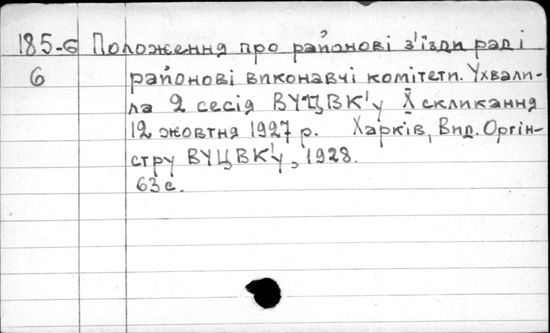 185-6 Положення про районові з'їзди рад і
6 районові виконавчі комітети. Ухвали-
ла 2 сесія ВУЦВК'у X скликання
12 жовтня 1927 р. Харків, Вид. Оргін-
стру ВУЦВК'у, 1928.
63 с.